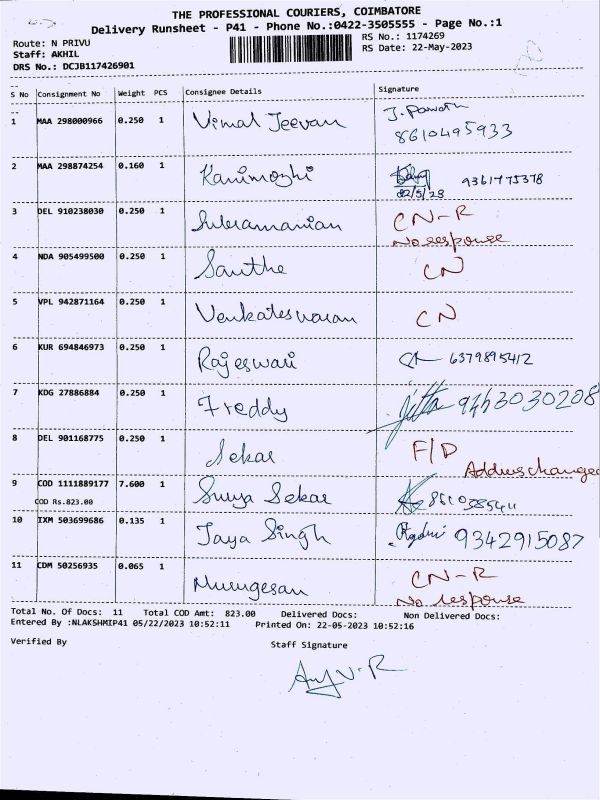 THE PROFESSIONAL COURIERS, COIMBATORE
Delivery Runsheet - P41 - Phone No.:0422-3505555 - Page No.:1
Route: N PRIVU
RS No.: 1174269
Staff: AKHIL
RS Date: 22-May-2023
DRS No.: DCJB117426901
S No Consignment No Weight PCS Consignee Details Signature
1 MAA 298000966 0.250 1 Vimal Jeevan
8610495933
2 MAA 298874254 0.160 1 Kanimozhi 9361775378
22/5/23
3 DEL 910238030 0.250 1 Subramanian CN-R
No response
4 NDA 905499500 0.250 1 Santhe CN
5 VPL 942871164 0.250 1 Venkateswaran CN
6 KUR 694846973 0.250 1 Rajeswari 6379895412
7 KDG 27886884 0.250 1 Freddy jitta 9443030208
8 DEL 901168775 0.250 1 Sekar F/D
Address changed
9 COD 1111889177 7.600 1 Surya Sekar
COD Rs.823.00
10 IXM 503699686 0.135 1 Jaya Singh 9342915087
11 CDM 50256935 0.065 1 Murugesan CN-R
No response
Total No. Of Docs: 11 Total COD Amt: 823.00 Delivered Docs: Non Delivered Docs:
Entered By :NLAKSHMIP41 05/22/2023 10:52:11 Printed On: 22-05-2023 10:52:16
Verified By
Staff Signature